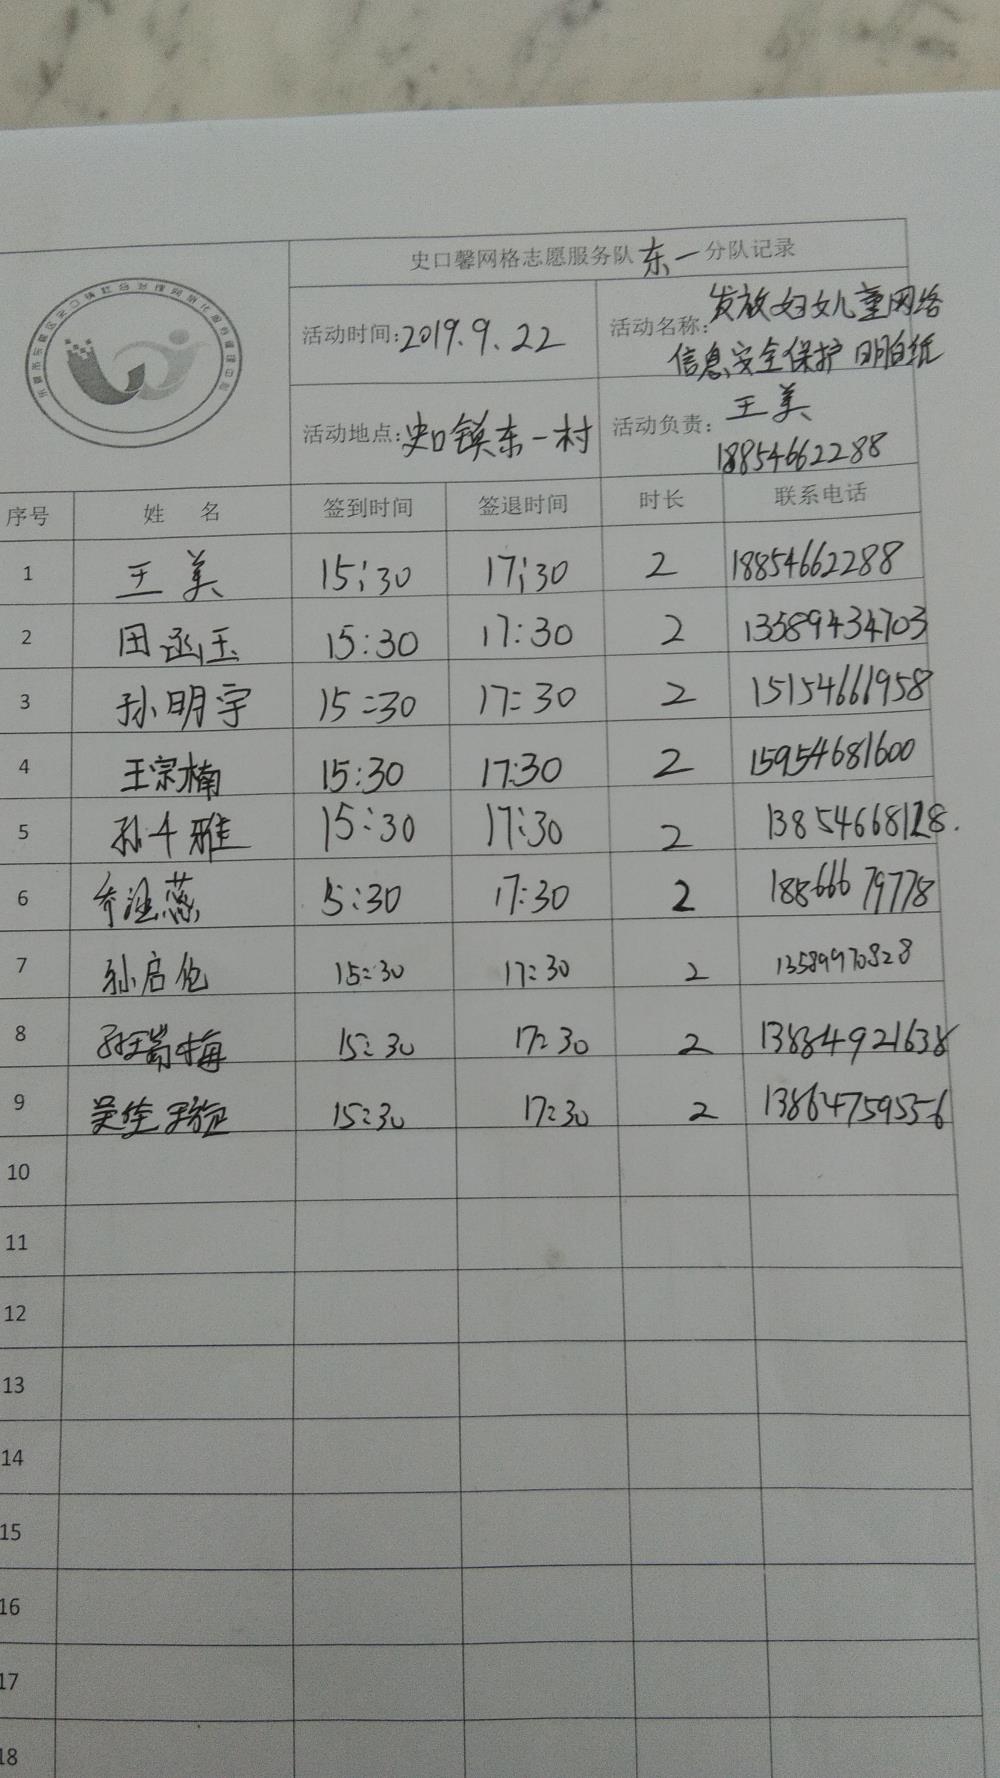 史口馨网格志愿服务队东一分队记录
活动时间:2019.9.22
活动名称:发放妇女儿童网络
信息安全保护明白纸
活动地点:史口镇东一村
活动负责:王美
18854662288
序号 姓 名 签到时间 签退时间 时长 联系电话
1 王美 15:30 17:30 2 18854662288
2 田函玉 15:30 17:30 2 13589434703
3 孙明宇 15:30 17:30 2 15154661958
4 王宗楠 15:30 17:30 2 15954681600
5 孙千雅 15:30 17:30 2 13854668128.
6 5:30 17:30 2 18866679778
7 孙启 15:30 17:30 2 13589970828
8 孙瑞梅 15:30 17:30 2 13884921638
9 吴佳 15:30 17:30 2 13864759556
10
11
12
13
14
15
16
17
18